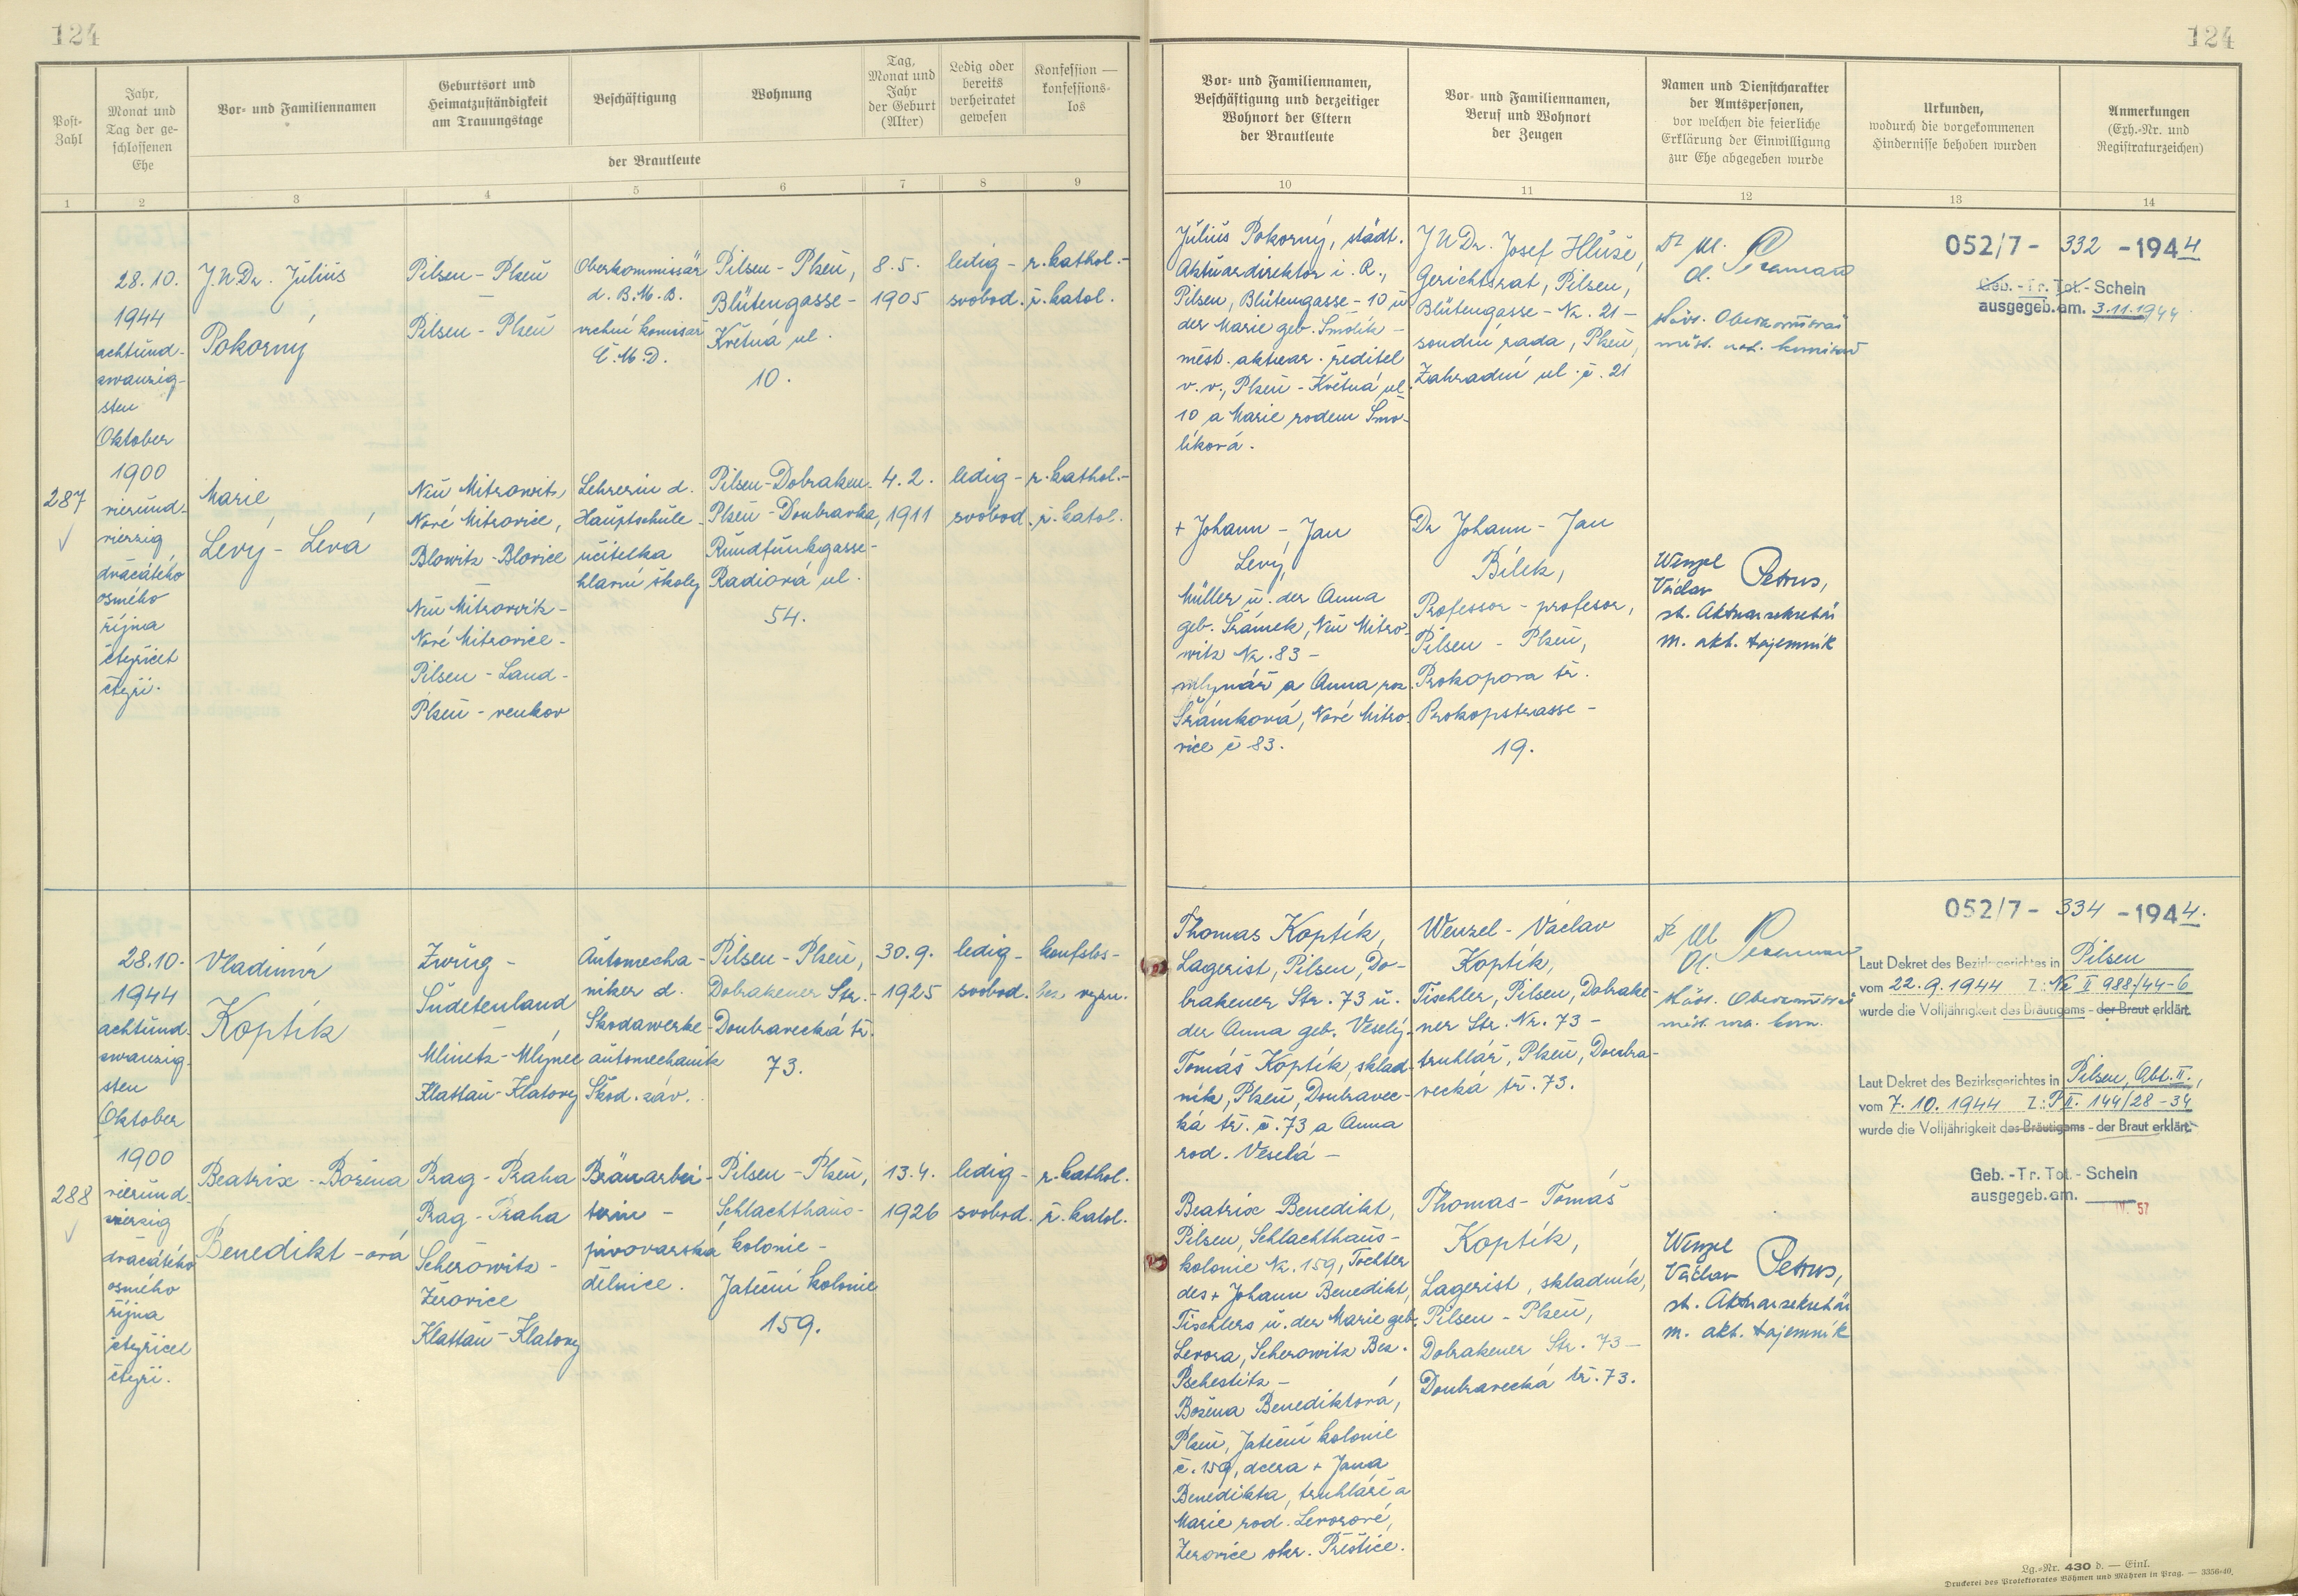 124
124
Post-
Zahl
Jahr,
Monat und
Tag der ge-
schlossenen
Ehe
Vor- und Familiennamen
Geburtsort und
Heimatzuständigkeit
am Trauungstage
Beschäftigung
Wohnung
Tag,
Monat und
Jahr
der Geburt
(Alter)
Ledig oder
bereits
verheiratet
gewesen
Konfession —
konfessions-
los
der Brautleute
Vor- und Familiennamen,
Beschäftigung und derzeitiger
Wohnort der Eltern
der Brautleute
Vor- und Familiennamen,
Beruf und Wohnort
der Zeugen
Namen und Dienstcharakter
der Amtspersonen,
vor welchen die feierliche
Erklärung der Einwilligung
zur Ehe abgegeben wurde
Urkunden,
wodurch die vorgekommenen
Hindernisse behoben wurden
Anmerkungen
(Exh.-Nr. und
Registraturzeichen)
1 2 3 4 5 6 7 8 9 10 11 12 13 14
287
28.10.
1944
achtund-
zwanzig-
sten
Oktober
1900
vierund-
vierzig
dvacátého
osmého
října
čtyřicet
čtyři.
J.U.Dr. Julius
Pokorný
Pilsen - Plzeň
Pilsen - Plzeň
Oberkommissär
d. B.M.B.
vrchní komisař
Č.M.D.
Pilsen - Plzeň,
Blütengasse -
Květná ul.
10.
8.5.
1905
ledig -
svobod.
r. kathol. -
ř. katol.
Marie
Levý - Levá
Neu Mitrowitz,
Nové Mitrovice,
Blowitz - Blovice
Neu Mitrowitz -
Nové Mitrovice -
Pilsen - Land -
Plzeň - venkov
Lehrerin d.
Hauptschule -
učitelka
hlavní školy
Pilsen - Dobraken -
Plzeň - Doubravka,
Rundfunkgasse -
Radiová ul.
54.
4.2.
1911
ledig -
svobod.
r. kathol. -
ř. katol.
Julius Pokorný, städt.
Aktuardirektor i. R.,
Pilsen, Blütengasse - 10 u.
der Marie geb. Smolík -
měst. aktuar. ředitel
v. v., Plzeň - Květná ul.
10 a Marie rodem Smo-
líková.
+ Johann - Jan
Levý,
Müller u. der Anna
geb. Šrámek, Neu Mitro-
witz Nr. 83 -
mlynář a Anna roz.
Šrámková, Nové Mitro-
vice č. 83.
J U Dr. Josef Hluše,
Gerichtsrat, Pilsen,
Blütengasse - Nr. 21 -
soudní rada, Plzeň,
Zahradní ul. č. 21
Dr Johann - Jan
Bílek,
Professor - profesor,
Pilsen - Plzeň,
Prokopova tř.
Prokopstrasse -
19.
Wenzel
Václav Petrus,
st. Aktuarsekretär
m. akt. tajemník
052/7 - 332 - 1944
Geb. - Tr. Tot. - Schein
ausgegeb. am. 3.11.1944
288
28.10.
1944
achtund-
zwanzig-
sten
Oktober
1900
vierund-
vierzig
dvacátého
osmého
října
čtyřicet
čtyři.
Vladimír
Koptík
Zwug -
Sudetenland
Mlinetz - Mlýnec
Klattau - Klatovy
Automecha-
niker d.
Skodawerke -
automechanik
Škod. záv.
Pilsen - Plzeň,
Dobrakener Str. -
Doubravecká tř.
73.
30.9.
1925
ledig -
svobod.
konfslos -
bez vyzn.
Beatrix - Božena
Benedikt - ová
Prag - Praha
Prag - Praha
Scherowitz -
Žerovice
Klattau - Klatovy
Bräuarbei-
terin -
pivovarská
dělnice.
Pilsen - Plzeň,
Schlachthaus-
kolonie -
Jateční kolonie
159.
13.4.
1926
ledig -
svobod.
r. kathol.
ř. katol.
Thomas Koptík,
Lagerist, Pilsen, Do-
brakener Str. 73 u.
der Anna geb. Veselý -
Tomáš Koptík, sklad-
ník, Plzeň, Doubravec-
ká tř. č. 73 a Anna
rod. Veselá -
Beatrix Benedikt,
Pilsen, Schlachthaus-
kolonie Nr. 159, Tochter
des + Johann Benedikt,
Tischlers u. der Marie geb.
Levora, Scherowitz Bez.
Pschestitz -
Božena Benediktová,
Plzeň, Jateční kolonie
č. 159, dcera + Jana
Benedikta, truhláře a
Marie rod. Levorové,
Žerovice okr. Přeštice.
Wenzel - Václav
Koptík,
Tischler, Pilsen, Dobrake-
ner Str. Nr. 73 -
truhlář, Plzeň, Doubra-
vecká tř. 73.
Thomas - Tomáš
Koptík,
Lagerist, skladník,
Pilsen - Plzeň,
Dobrakener Str. 73 -
Doubravecká tř. 73.
Wenzel
Václav Petrus,
st. Aktuarsekretär
m. akt. tajemník
052/7 - 334 - 1944.
Laut Dekret des Bezirksgerichtes in Pilsen
vom 22.9.1944 Z.: Nc II 988/44-6
wurde die Volljährigkeit des Bräutigams - der Braut erklärt.
Laut Dekret des Bezirksgerichtes in Pilsen, Abt. II.,
vom 7.10.1944 Z.: P II. 144/28-34
wurde die Volljährigkeit des Bräutigams - der Braut erklärt.
Geb. - Tr. Tot. - Schein
ausgegeb. am.
IV. 57
Lg.-Nr. 430 d. — Einl.
Druckerei des Protektorates Böhmen und Mähren in Prag. — 3356-40.